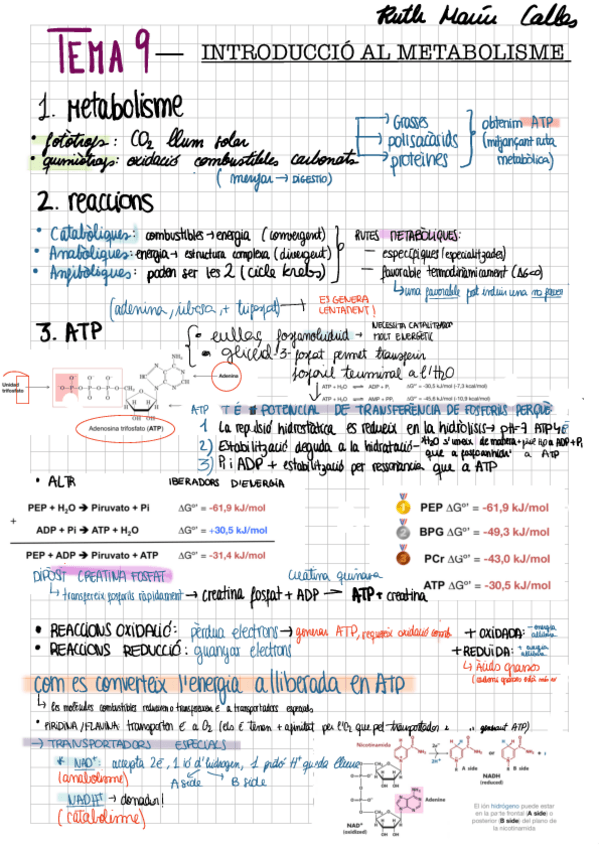 Ruth Marín
TEMA 9 — INTRODUCCIÓ AL METABOLISME
1. Metabolisme
• fotòtrofs: CO2 llum solar
• quimiòtrofs: oxidació combustibles carbonats
(menjar → DIGESTIÓ)
Grasses
polisacàrids
proteïnes
obtenim ATP
(mitjançant ruta
metabòlica)
2. reaccions
• Catabòliques: combustibles → energia (convergent)
• Anabòliques: energia → estructura complexa (divergent)
• Amfibòliques: poden ser les 2 (cicle krebs)
RUTES METABÒLIQUES:
— específiques/especialitzades)
— favorable termodinàmicament (ΔG<0)
↳ una favorable pot induir una no
(adenina, ribosa, + trifosfat) →
ES GENERA
LENTAMENT!
3. ATP
enllaç →
NECESSITA CATALITZADOR
MOLT ENERGÈTIC
glicerol-3-fosfat permet transferir
fosforil terminal a l'H2O
Unidad
trifosfato
NH2
Adenina
Adenosina trifosfato (ATP)
ATP + H2O ⟶ ADP + Pi ΔG°' = -30,5 kJ/mol (-7,3 kcal/mol)
ATP + H2O ⟶ AMP + PPi ΔG°' = -45,6 kJ/mol (-10,9 kcal/mol)
ATP TÉ POTENCIAL DE TRANSFERENCIA DE FOSFORILS PERQUÈ
1 La repulsió es redueix en la hidròlisis → pH=7 ATP 4
2) Estabilització deguda a la hidratació - H2O s'uneix de manera + a ADP + Pi
que a a ATP
3) Pi i ADP + estabilització per ressonància que a ATP
• ALTR IBERADORS D'ENERGIA
PEP + H2O ➔ Piruvato + Pi ΔG°' = -61,9 kJ/mol
+
ADP + Pi ➔ ATP + H2O ΔG°' = +30,5 kJ/mol
PEP + ADP ➔ Piruvato + ATP ΔG°' = -31,4 kJ/mol
1 PEP ΔG°' = -61,9 kJ/mol
2 BPG ΔG°' = -49,3 kJ/mol
3 PCr ΔG°' = -43,0 kJ/mol
ATP ΔG°' = -30,5 kJ/mol
DIPÒSIT CREATINA FOSFAT
creatina quinasa
↳ transfereix fosforils ràpidament → creatina fosfat + ADP → ATP + creatina
• REACCIONS OXIDALIÓ: pèrdua electrons → generar ATP, requereix oxidació
• REACCIONS REDUCCIÓ: guanyar electrons
+ OXIDADA: - energia
+ REDUÏDA: + energia
↳ Àcids grassos
com es converteix l'energia alliberada en ATP
↳ Les molècules combustibles transfereixen é a transportadors especials
• PIRIDINA/FLAVINA: transporten é a O2 (els é tenen + afinitat per l'O2 que pel transportador, generant ATP)
→ TRANSPORTADORS ESPECIALS
* NAD+: accepta 2é, 1 ió d'hidrogen, 1 protó H+ queda lliure
(anabolisme)
A side B side
NADH+ → donador!
(catabolisme)
Nicotinamida
Adenine
NAD+
(oxidized)
2e-
2H+
A side
or
B side
NADH
(reduced)
El ión hidrógeno puede estar
en la parte frontal (A side) o
posterior (B side) del plano de
la nicotinamida